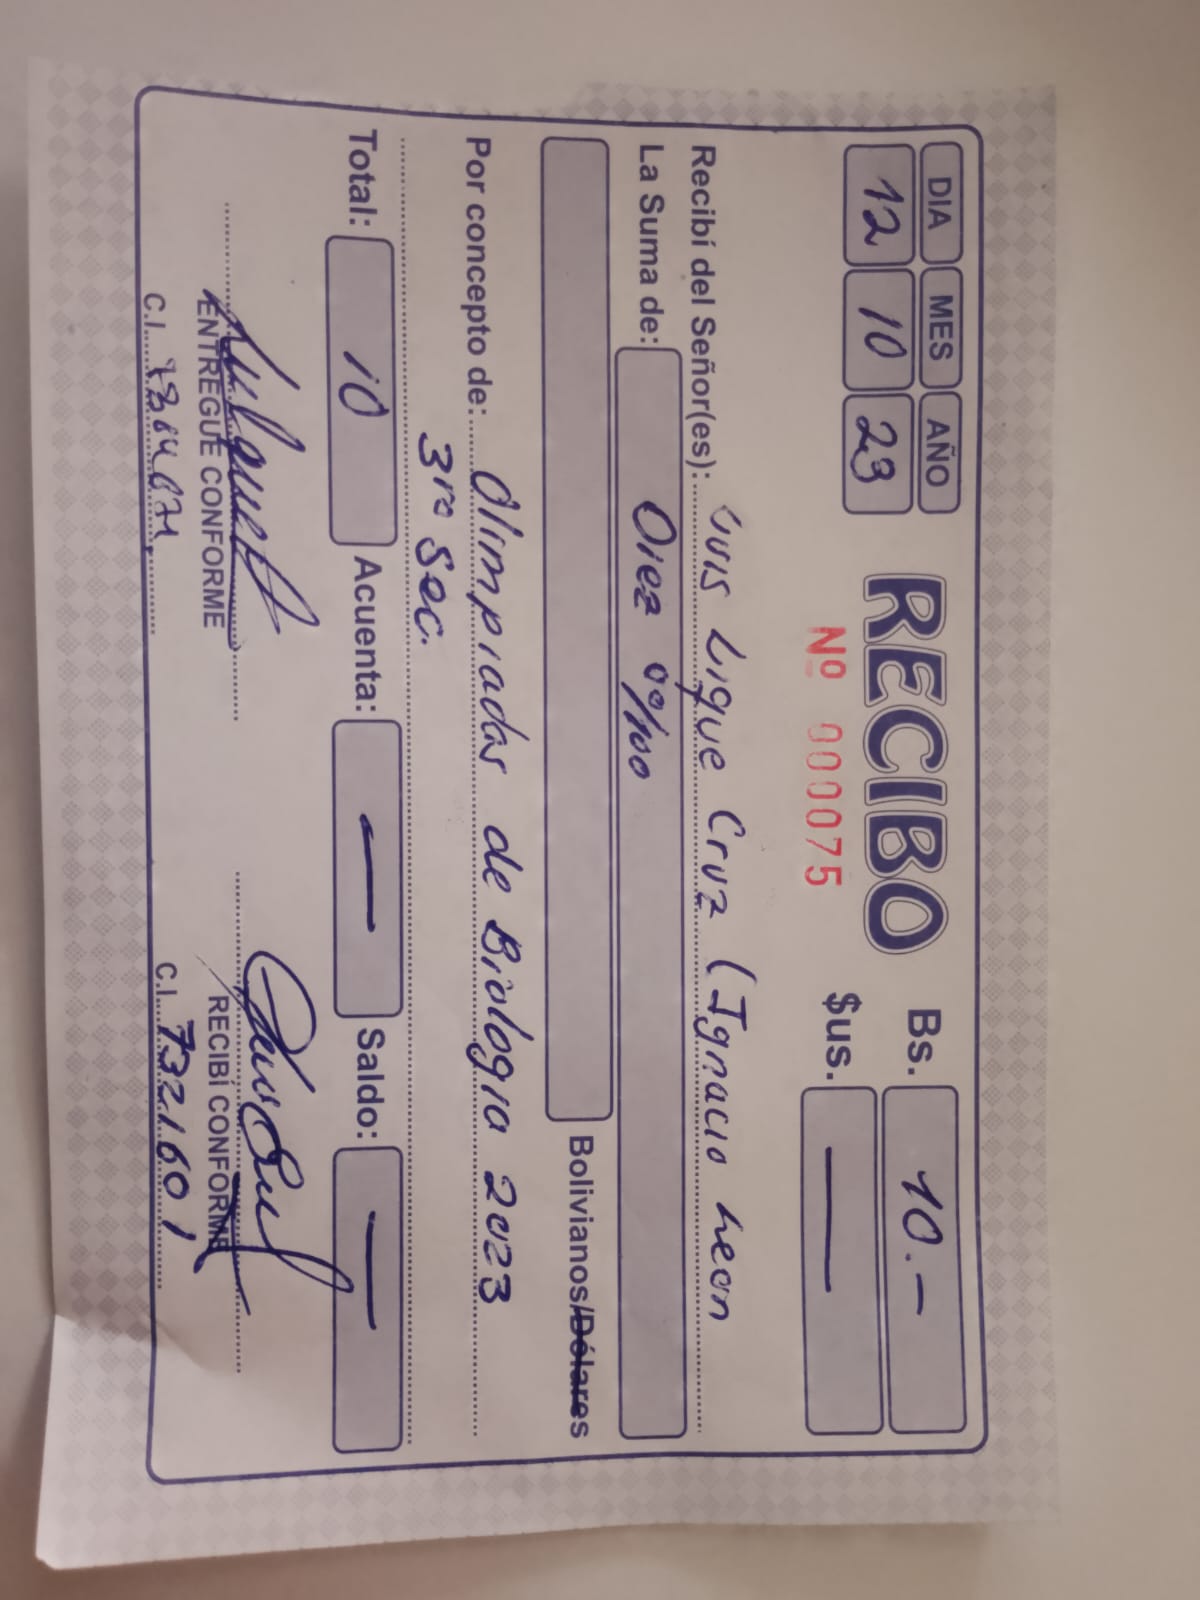 DIA MES AÑO
12 10 23
RECIBO
Nº 000075
Bs. 10.-
$us. —
Recibí del Señor(es): Luis Lique Cruz (Ignacio Leon
La Suma de: Diez 00/100
Bolivianos/Dólares
Por concepto de: Olimpiadas de Biologia 2023
3ro Sec.
Total: 10 Acuenta: — Saldo: —
ENTREGUE CONFORME RECIBÍ CONFORME
C.I. C.I. 732160 1